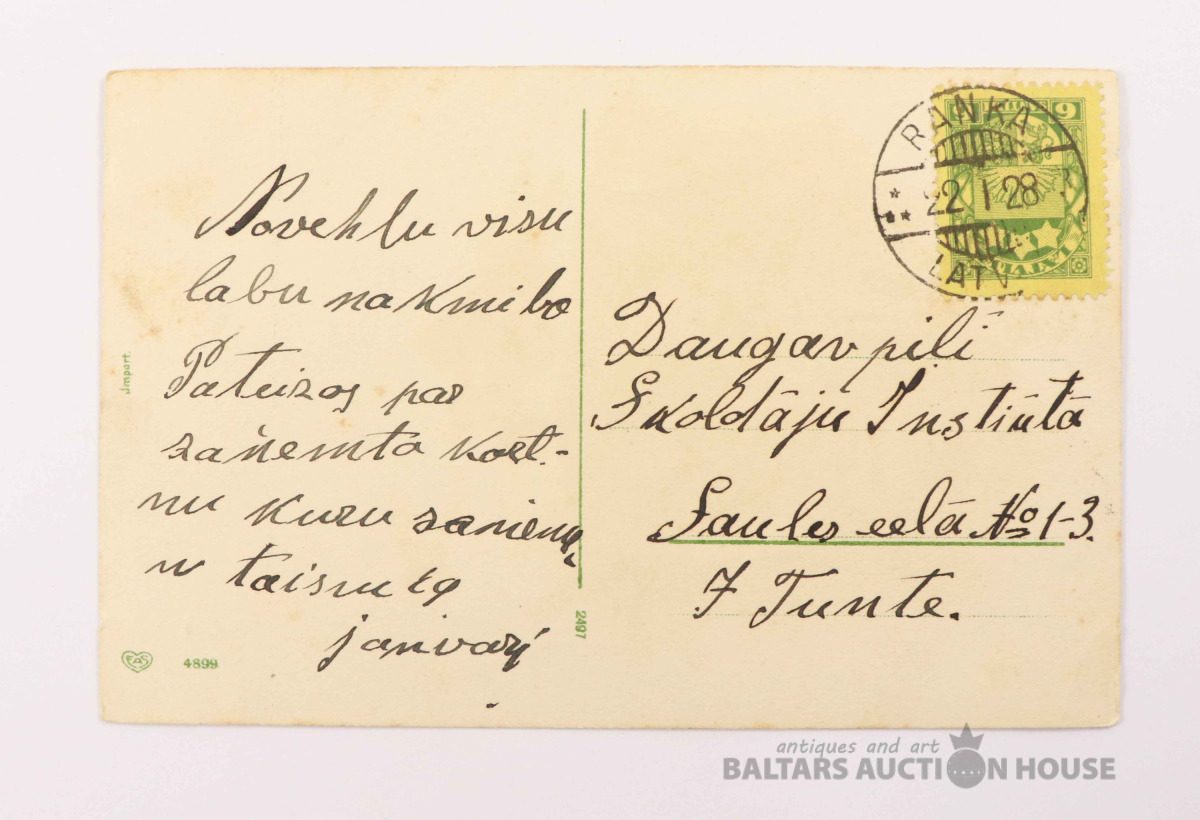 Novehlu visu
labu nakmibo
Pateizos par
saņemto kart-
nu kuru saniemu
taisnu 19
janivarị
Import.
EAS
4899
2497
6
RANKA
22 1 28
LATV
LATVIJA
Daugavpilī
Skoldāju Instiūta
Saules eelā No 1-3.
J Tunte.
antiques and art
BALTARS AUCTION HOUSE